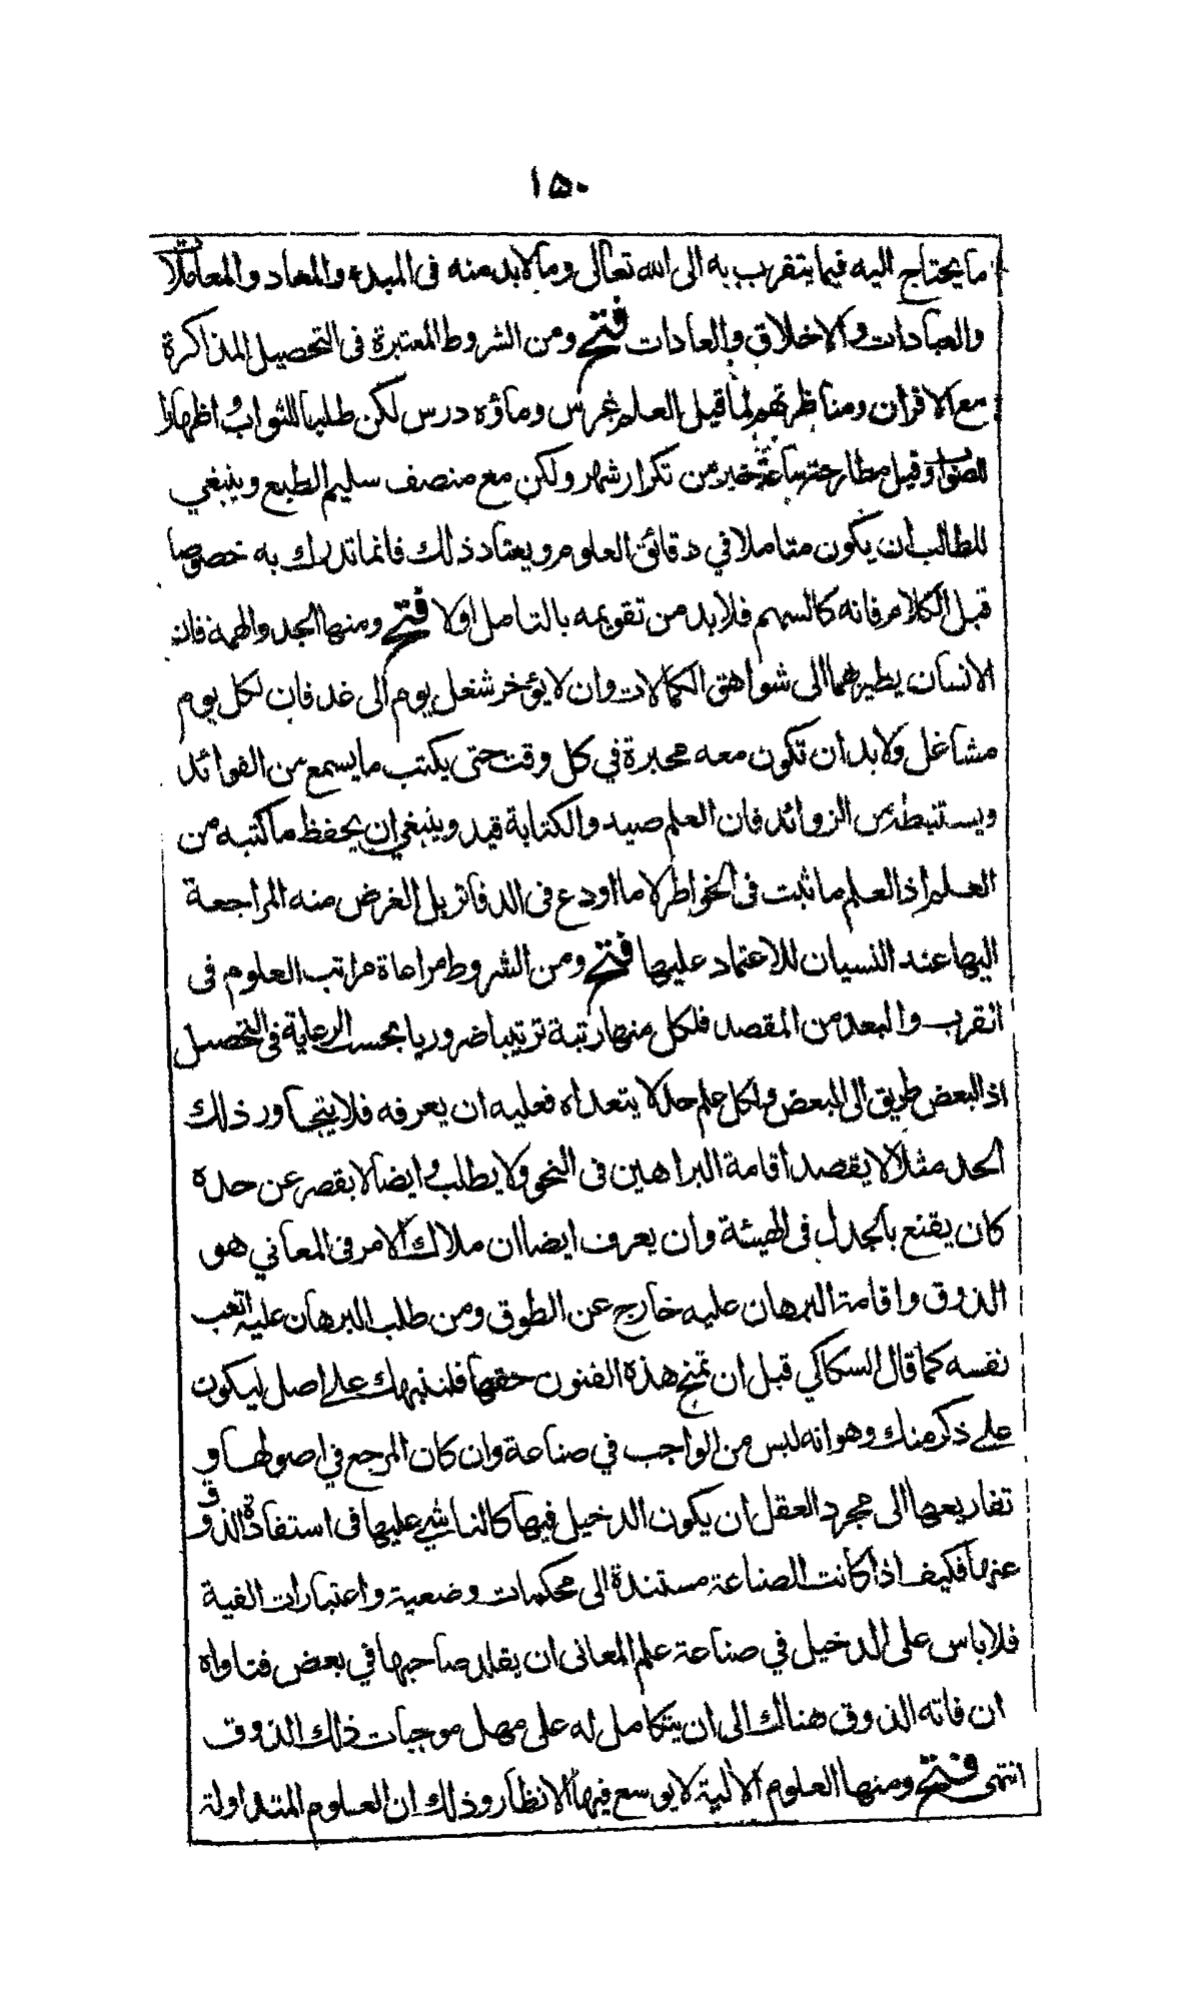 ١٥٠
ما يحتاج اليه فيما يتقرب به الى الله تعالى وما لابد منه فى المبدء والمعاد والمعاملات
والعبادات والاخلاق والعادات فتح ومن الشروط المعتبرة فى التحصيل المذاكرة
مع الاقران ومناظرتهم لما قيل العلم غرس وماؤه درس لكن طلبا للثواب واظهارا
للصواب وقيل مطارحة ساعة خير من تكرار شهر ولكن مع منصف سليم الطبع وينبغي
للطالب ان يكون متاملا في دقائق العلوم ويعتاد ذلك فانما تدرك به خصوصا
قبل الكلام فانه كالسهم فلابد من تقويمه بالتامل اولا فتح ومنها الجد والهمة فان
الانسان يطير بهما الى شواهق الكمالات وان لا يؤخر شغل يوم الى غد فان لكل يوم
مشاغل ولابد ان تكون معه محبرة في كل وقت حتى يكتب ما يسمع من الفوائد
ويستنبط من الزوائد فان العلم صيد والكتابة قيد وينبغي ان يحفظ ما كتبه من
العلم اذ العلم ما ثبت فى الخواطر لا ما اودع فى الدفاتر بل الغرض منه المراجعة
اليها عند النسيان للاعتماد عليها فتح ومن الشروط مراعاة مراتب العلوم فى
القرب والبعد من المقصد فلكل منها رتبة ترتيبا ضروريا بحسب الرعاية فى التحصيل
اذ البعض طريق الى البعض ولكل علم حد لا يتعداه فعليه ان يعرفه فلا يتجاوز ذلك
الحد مثلا لا يقصد اقامة البراهين فى النحو ولا يطلب وايضا لا يقصر عن حده
كان يقنع بالجدل فى الهيئة وان يعرف ايضا ان ملاك الامر فى المعاني هو
الذوق واقامة البرهان عليه خارج عن الطوق ومن طلب البرهان عليه اتعب
نفسه كما قال السكاكي قبل ان تمنح هذه الفنون حقها فلننبهك على اصل ليكون
على ذكر منك وهو انه ليس من الواجب في صناعة وان كان المرجع في اصولها و
تفاريعها الى مجرد العقل ان يكون الدخيل فيها كالناشي عليها فى استفادة الذوق
عنها فكيف اذا كانت الصناعة مستندة الى محكمات وضعية واعتبارات الفية
فلا باس على الدخيل في صناعة علم المعانى ان يقلد صاحبها في بعض فتاواه
ان فاته الذوق هناك الى ان يتكامل له على مهل موجبات ذلك الذوق
انتهى فتح ومنها العلوم الالية لا يوسع فيها الانظار وذلك ان العلوم المتداولة